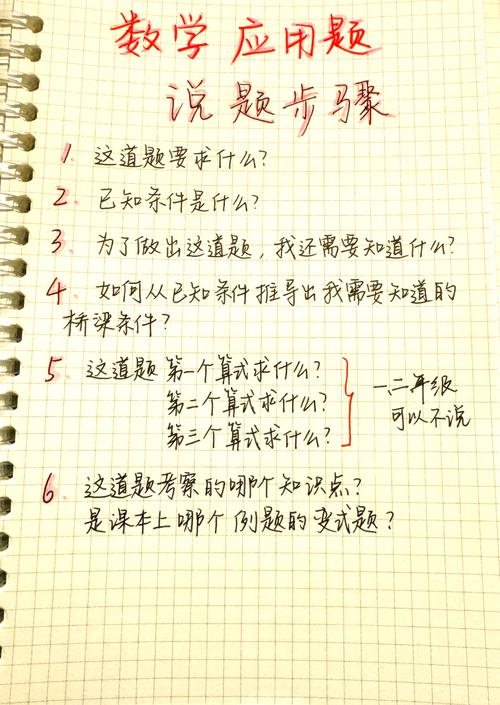 数学 应用题
说题步骤
1. 这道题要求什么?
2. 已知条件是什么?
3. 为了做出这道题,我还需要知道什么?
4. 如何从已知条件推导出我需要知道的
桥梁条件?
5. 这道题 第一个算式求什么?
第二个算式求什么?
第三个算式求什么?
一、二年级
可以不说
6. 这道题考察的哪个知识点?
是课本上哪个例题的变式题?